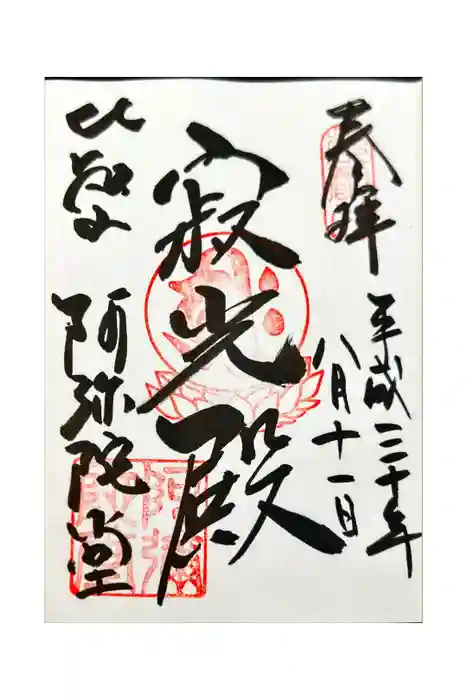 奉拝
平成三十年
八月十一日
寂光殿
比叡山
阿弥陀堂